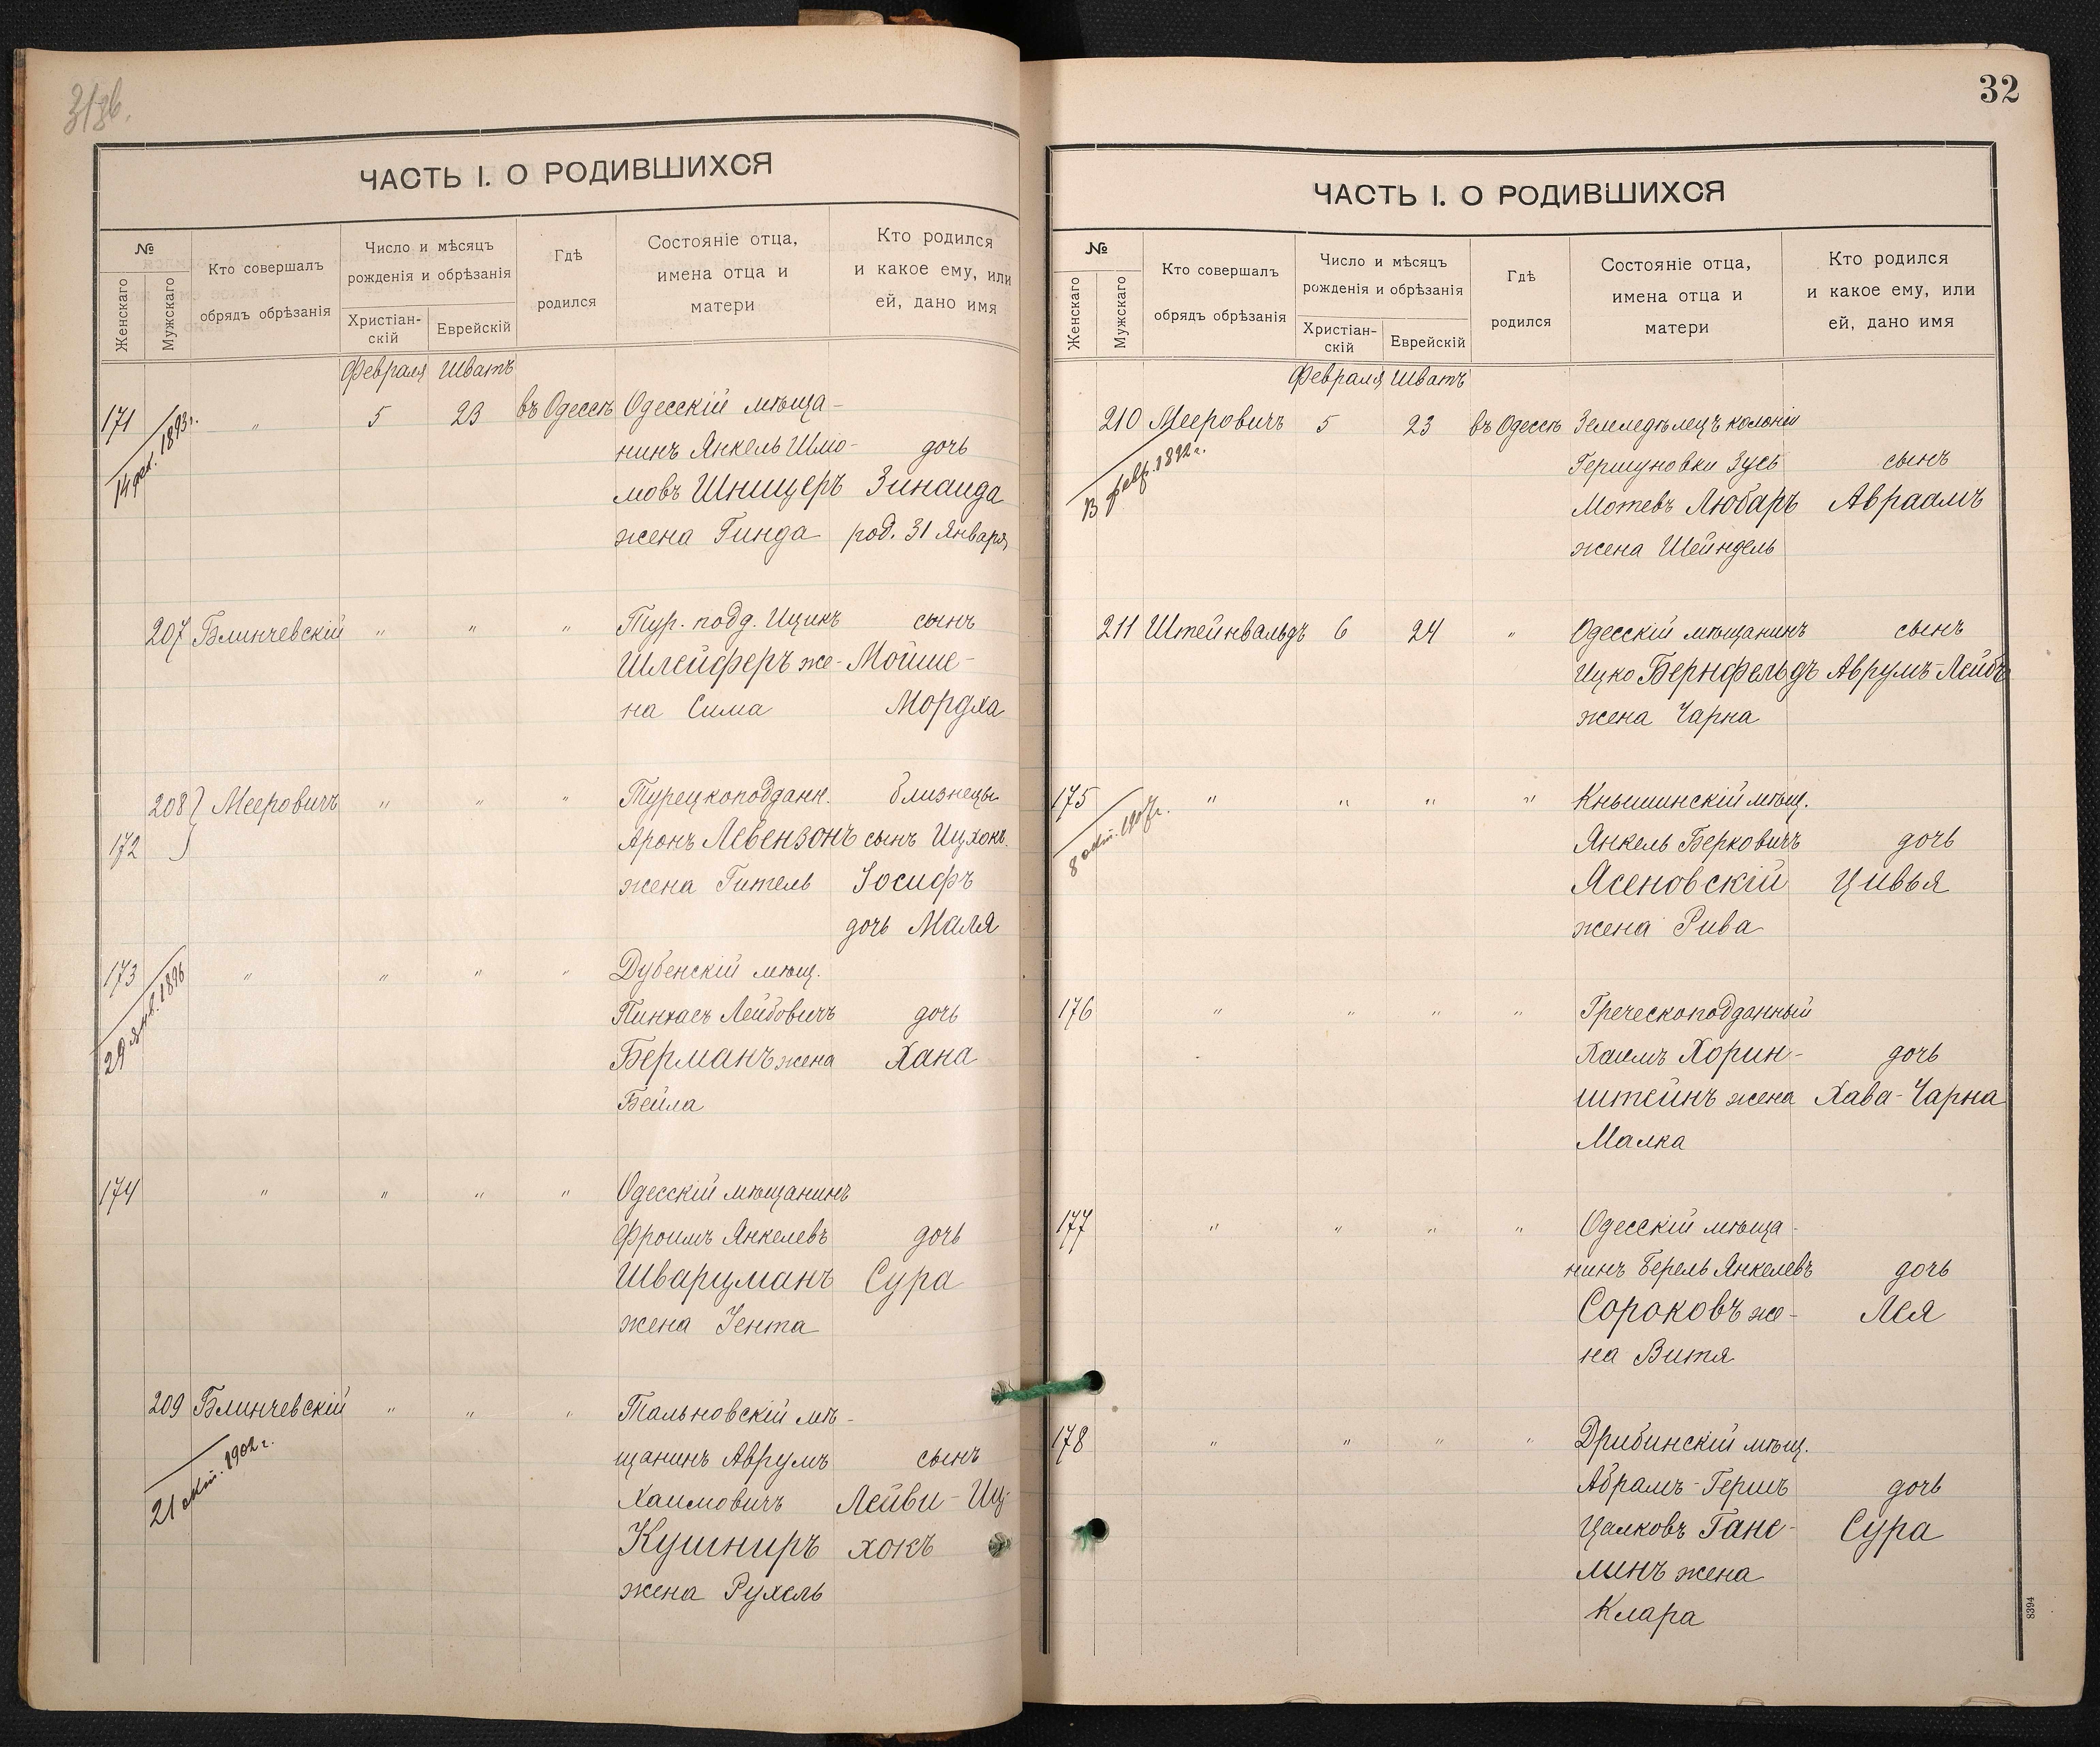 31зв.
ЧАСТЬ I. О РОДИВШИХСЯ
№
Женскаго
Мужскаго
Кто совершалъ
обрядъ обрѣзанія
Число и мѣсяцъ
рожденія и обрѣзанія
Христіан-
скій
Еврейскій
Гдѣ
родился
Состояніе отца,
имена отца и
матери
Кто родился
и какое ему, или
ей, дано имя
Февраля Шватъ
171 " 5 23 въ Одессѣ Одесскій мѣща-
14 дек. 1893г.
нинъ Янкель Шмо- дочь
мовъ Шницеръ Зинаида
жена Гинда род. 31 Января
207 Блинчевскій " " " Тур. подд. Ицикъ сынъ
Шлейферъ же- Мойше-
на Сима Мордха
208 Мееровичъ " " " Турецкоподданн. близнецы
172 Аронъ Левензонъ сынъ Ицхокъ
жена Гитель Іосифъ
дочь Маля
173 " " " " Дубенскій мѣщ.
29 янв. 1896
Пинхасъ Лейбовичъ дочь
Берманъ жена Хана
Бейла
174 " " " " Одесскій мѣщанинъ
Фроимъ Янкелевъ дочь
Шварцманъ Сура
жена Іента
209 Блинчевскій " " " Тальновскій мѣ-
21 окт. 1902 г.
щанинъ Аврумъ сынъ
Хаимовичъ Лейви-Иц-
Кушниръ хокъ
жена Рухель
32
ЧАСТЬ I. О РОДИВШИХСЯ
№
Женскаго
Мужскаго
Кто совершалъ
обрядъ обрѣзанія
Число и мѣсяцъ
рожденія и обрѣзанія
Христіан-
скій
Еврейскій
Гдѣ
родился
Состояніе отца,
имена отца и
матери
Кто родился
и какое ему, или
ей, дано имя
Февраля Шватъ
210 Мееровичъ 5 23 въ Одессѣ Земледѣлецъ колоніи
13 февр. 1892 г.
Гершуновки Зусь сынъ
Мотевъ Любаръ Авраамъ
жена Шейндель
211 Штейнвальдъ 6 24 " Одесскій мѣщанинъ сынъ
Ицко Бернфельдъ Аврумъ-Лейбъ
жена Чарна
175 " " " " Кнышинскій мѣщ.
8 окт. 1907г.
Янкель Берковичъ дочь
Ясеновскій Цивья
жена Рива
176 " " " " Греческоподданный
Хаимъ Хорин- дочь
штейнъ жена Хава-Чарна
Малка
177 " " " " Одесскій мѣща-
нинъ Берель Янкелевъ дочь
Сороковъ же- Лея
на Витя
178 " " " " Дрибинскій мѣщ.
Абрамъ-Гершъ дочь
Цалковъ Гане- Сура
линъ жена
Клара
8394